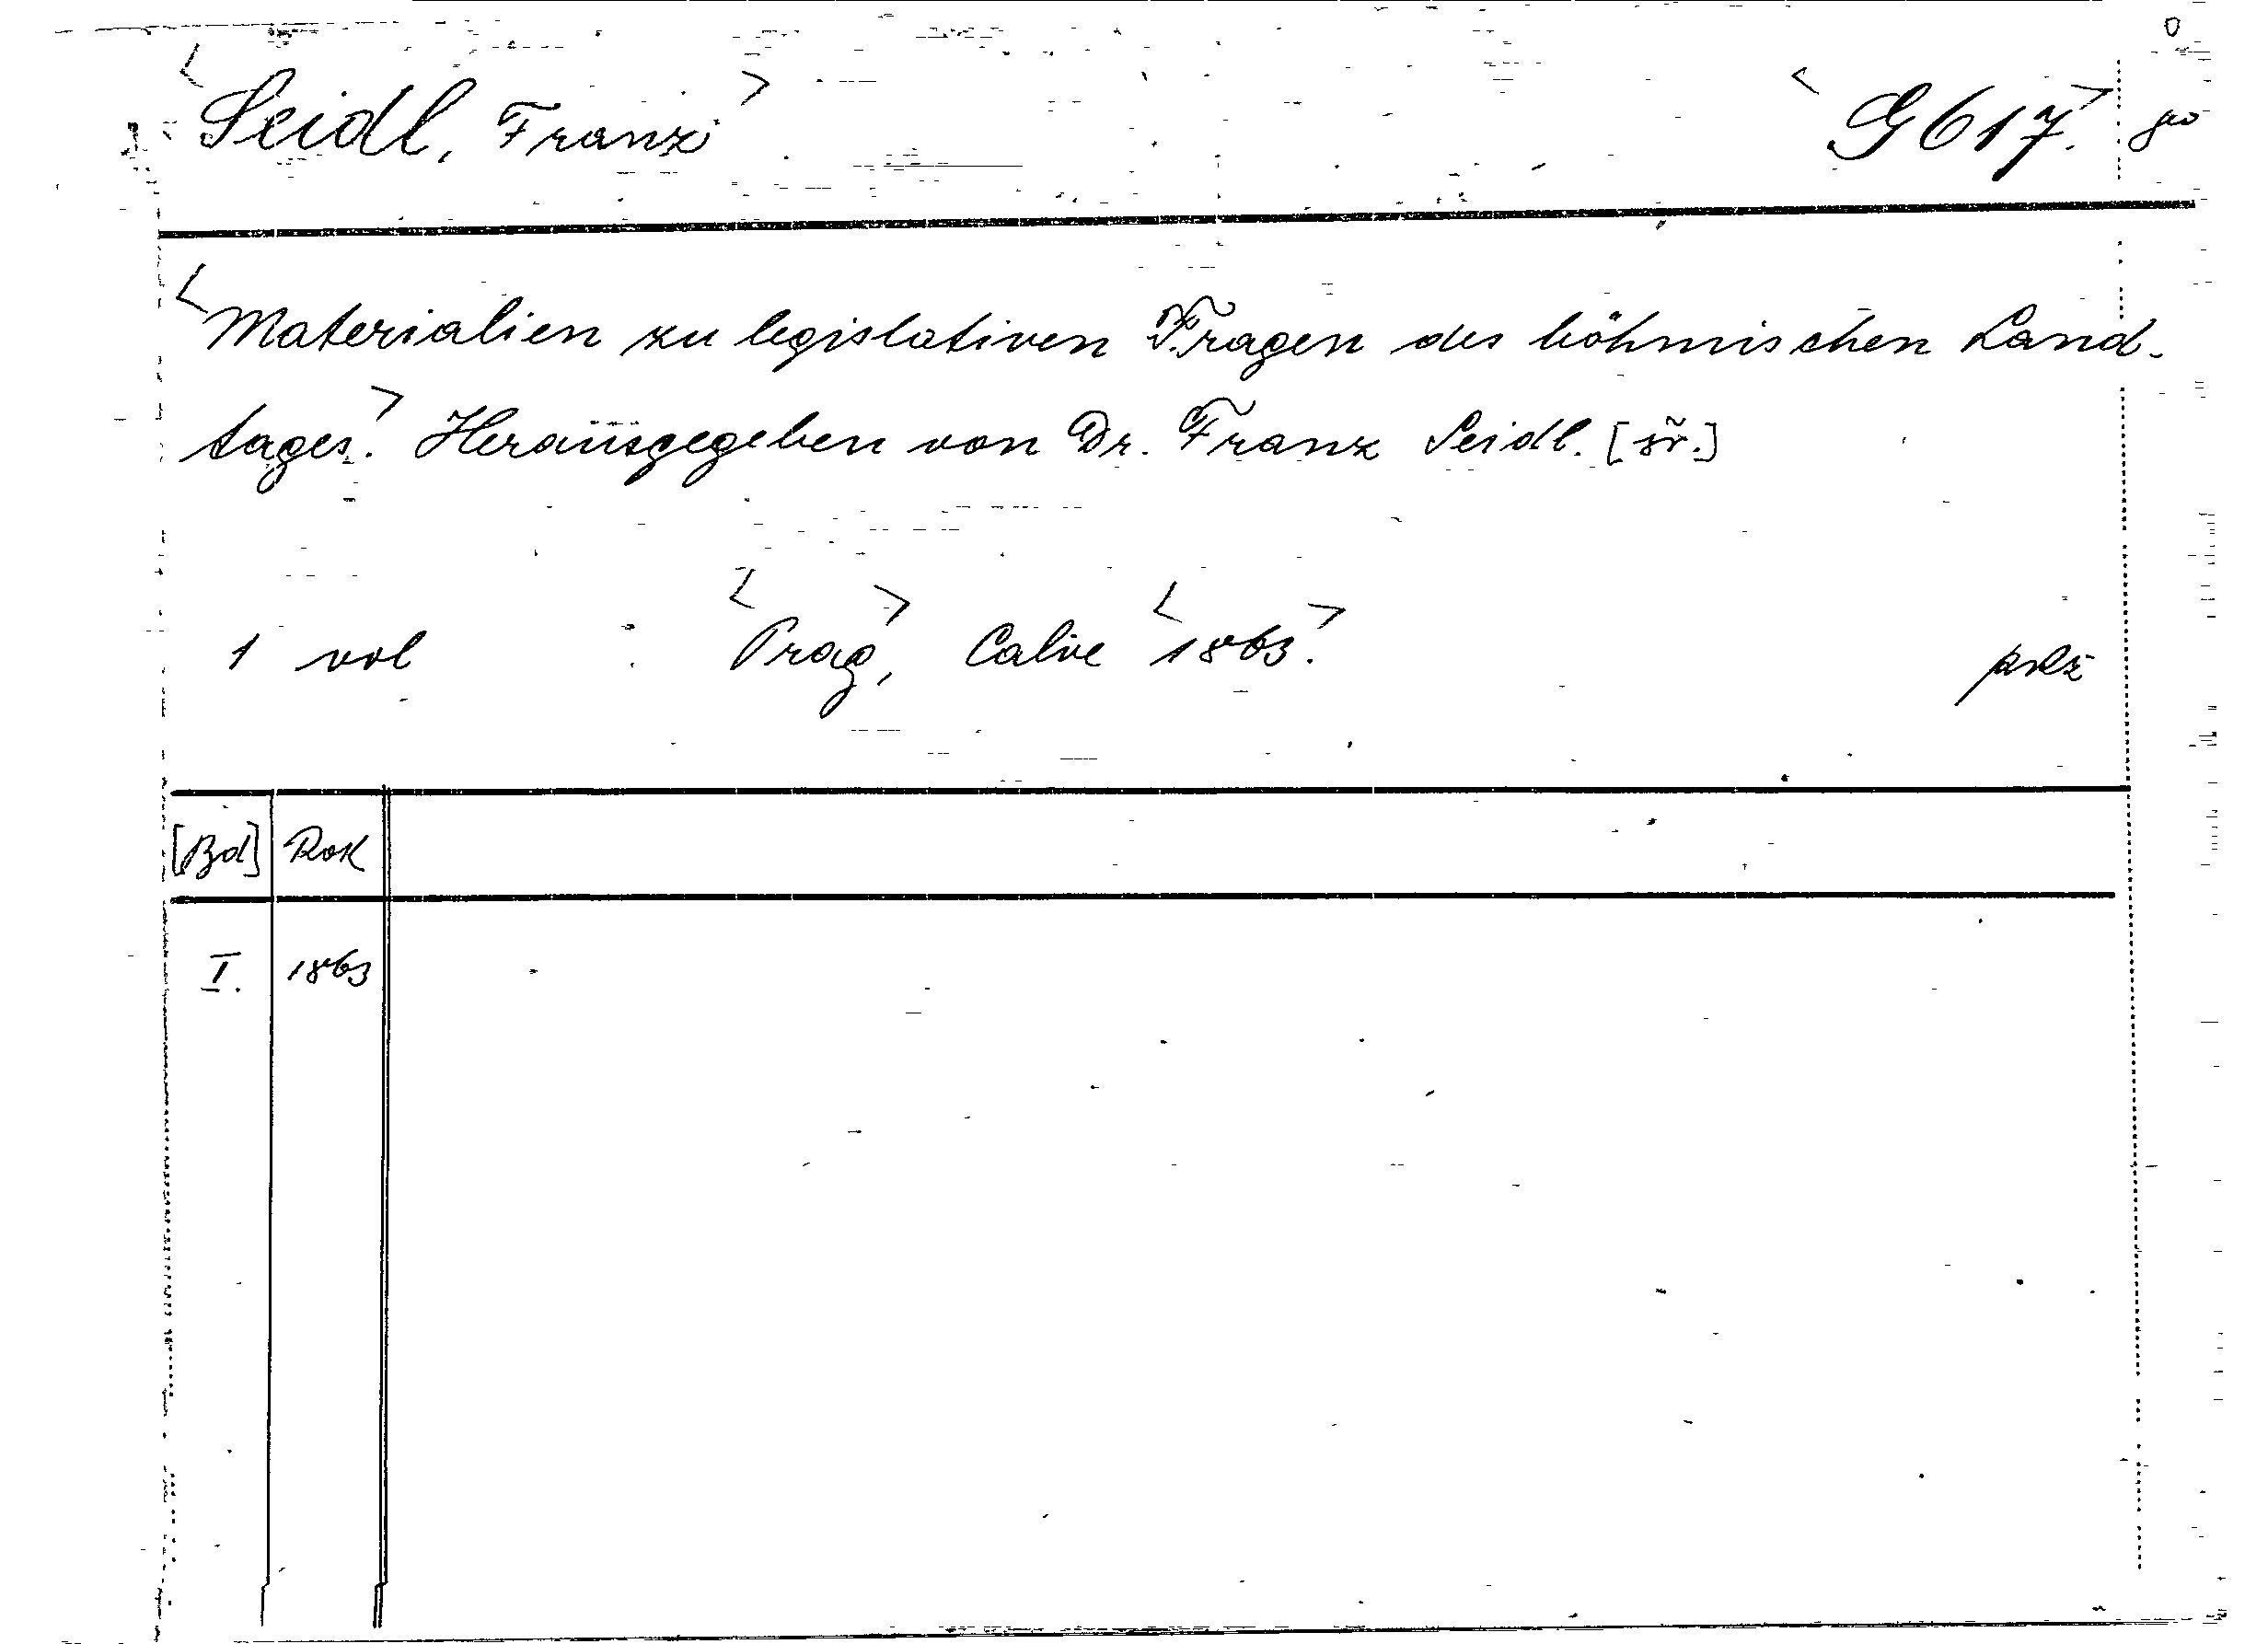 <Seidl, Franz> <G 617.>
<Materialien zu legislativen Fragen des böhmischen Land-
tages.> Herausgegeben von Dr. Franz Seidl. [sv.]
1 vol <Prag>, Calve <1863.>
[Bd] Rok
I. 1863